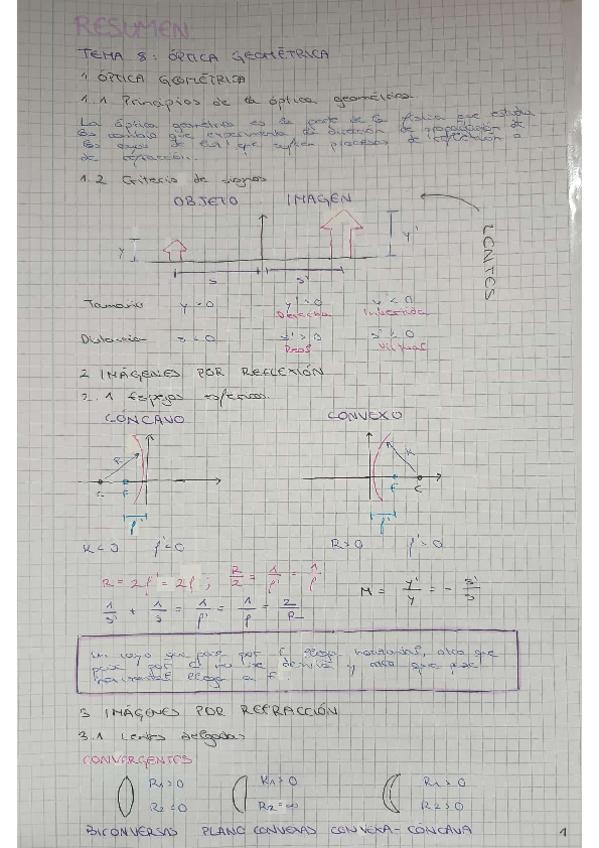 RESUMEN
TEMA 8: ÓPTICA GEOMÉTRICA
1 ÓPTICA GEOMÉTRICA
1.1 Principios de la óptica geométrica
La óptica geométrica es la parte de la física que estudia
los cambios que experimenta la dirección de propagación de
los rayos de luz que sufren procesos de reflexión o
de refracción.
1.2 Criterio de signos
OBJETO IMAGEN
y y'
s s'
LENTES
Tamaño y > 0 y' > 0 y' < 0
Derecha Invertida
Distancia s' > 0
Virtual
2 IMÁGENES POR REFLEXIÓN
2.1 Espejos esféricos
CÓNCAVO CONVEXO
R R
C F F C
f' f'
R<0 f'<0 R>0 f'>0
R = 2f' = 2f ; 2/R = 1/f' = 1/f
M = y'/y = - s'/s
1/s' + 1/s = 1/f' = 1/f = 2/R
un rayo que pase por F llega horizontal, otro que
pase por C no se desvía y otro que pase
horizontal llega a F.
3 IMÁGENES POR REFRACCIÓN
3.1 Lentes delgadas
CONVERGENTES
R₁>0 R₁>0 R₁>0
R₂<0 R₂=∞ R₂>0
BICONVEXAS PLANO CONVEXAS CONVEXA-CÓNCAVA
1